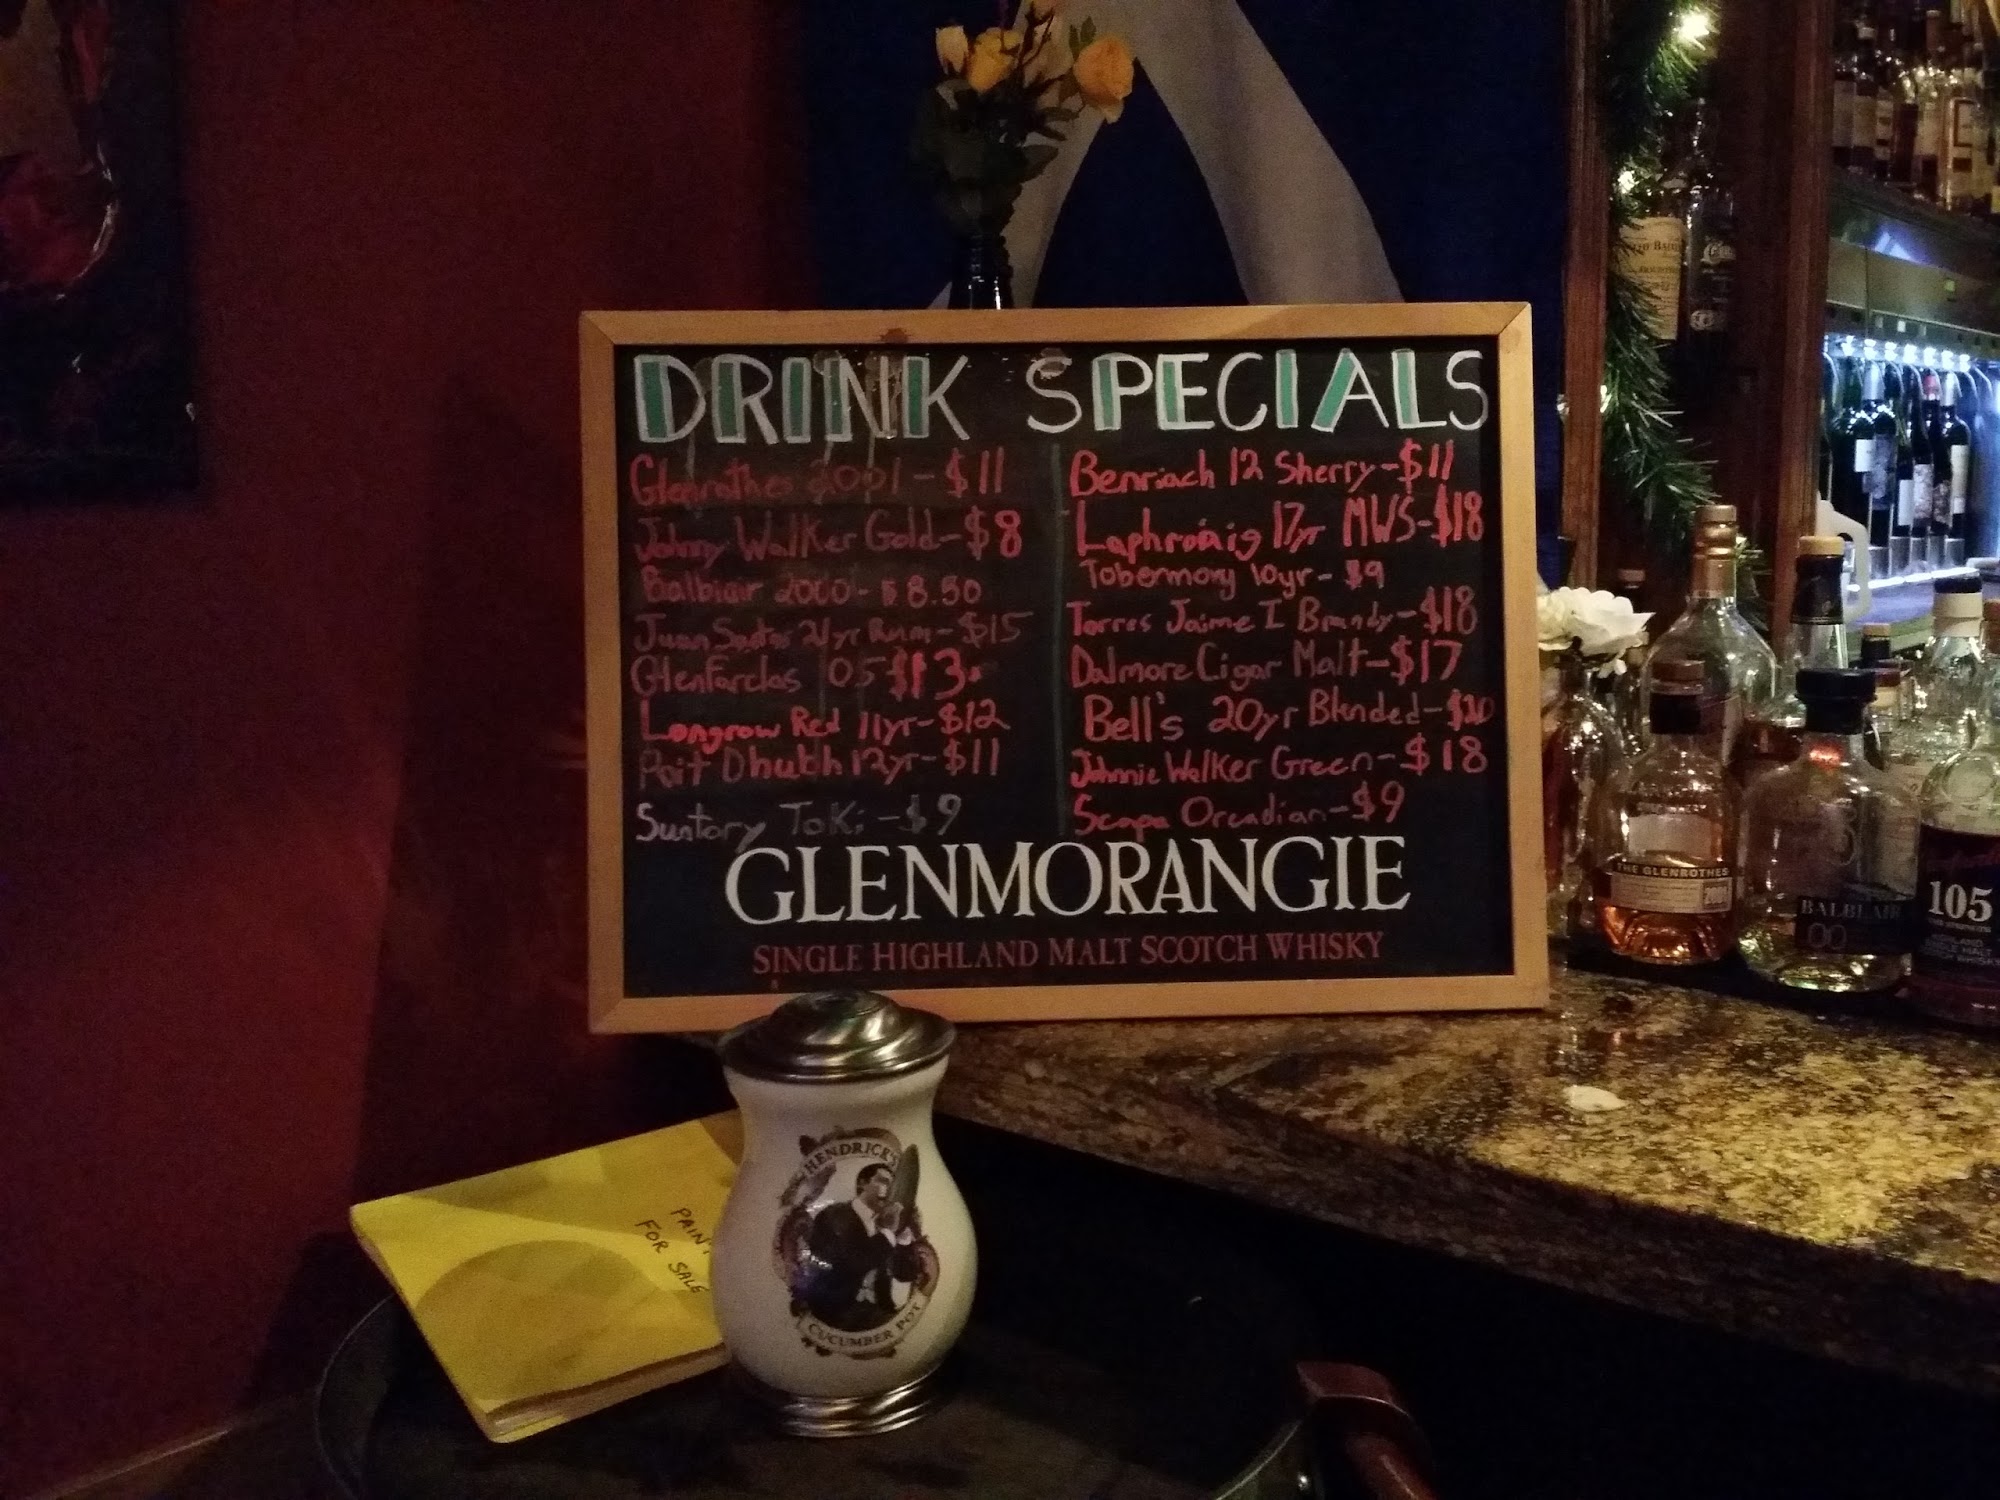 DRINK SPECIALS
Glenrothes 2001 - $11
Johnny Walker Gold - $8
Balblair 2000 - $8.50
Juan Santos 21yr Rum - $15
Glenfarclas 105 $13
Longrow Red 11yr - $12
Poit Dhubh 12yr - $11
Suntory Toki - $9
Benriach 12 Sherry - $11
Laphroiaig 17yr MWS - $18
Tobermory 10yr - $9
Torres Jaime I Brandy - $18
Dalmore Cigar Malt - $17
Bell's 20yr Blended -
Johnnie Walker Green - $18
Scapa Orcadian - $9
GLENMORANGIE
SINGLE HIGHLAND MALT SCOTCH WHISKY
THE GLENROTHES
2001
BALBLAIR
00
105
HENDRICK'S
CUCUMBER POT
FOR SALE